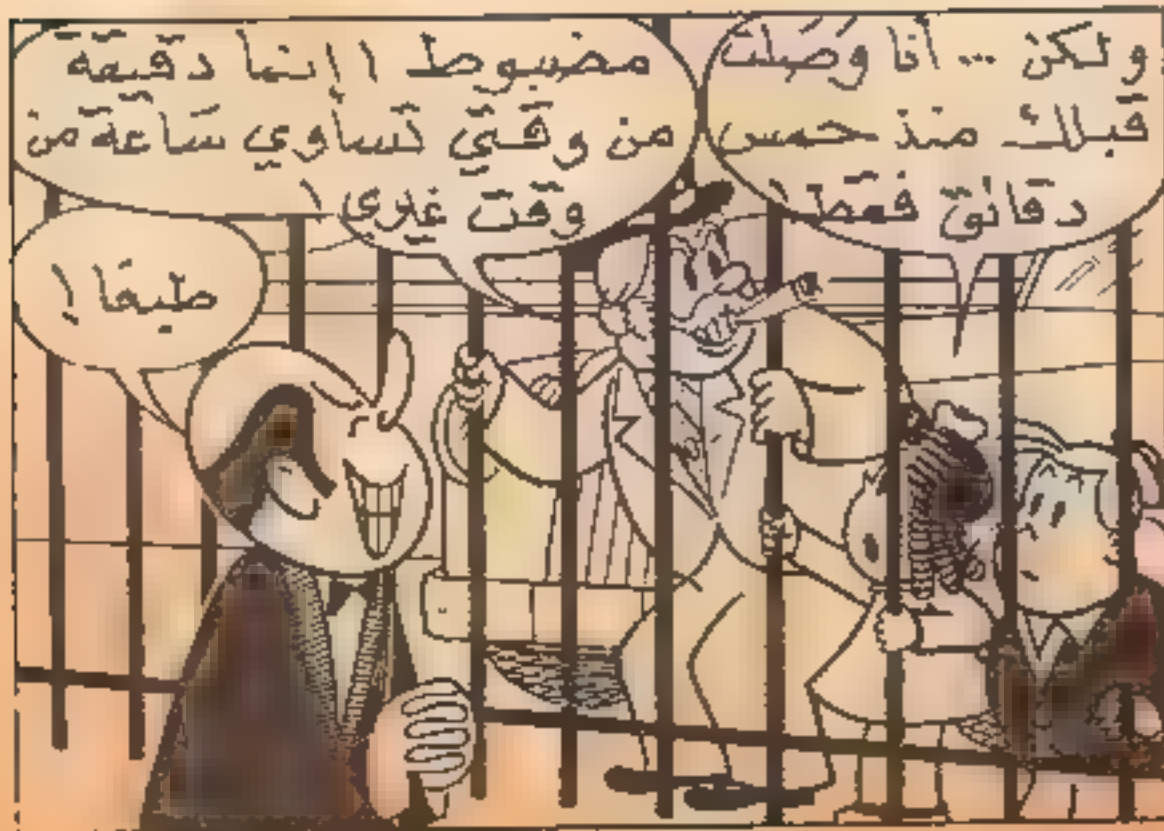 ولكن ... أنا وصلت
قبلك منذ خمس
دقائق فقط!
مضبوط! إنما دقيقة
من وقتي تساوي ساعة من
وقت غيري!
طبعا!